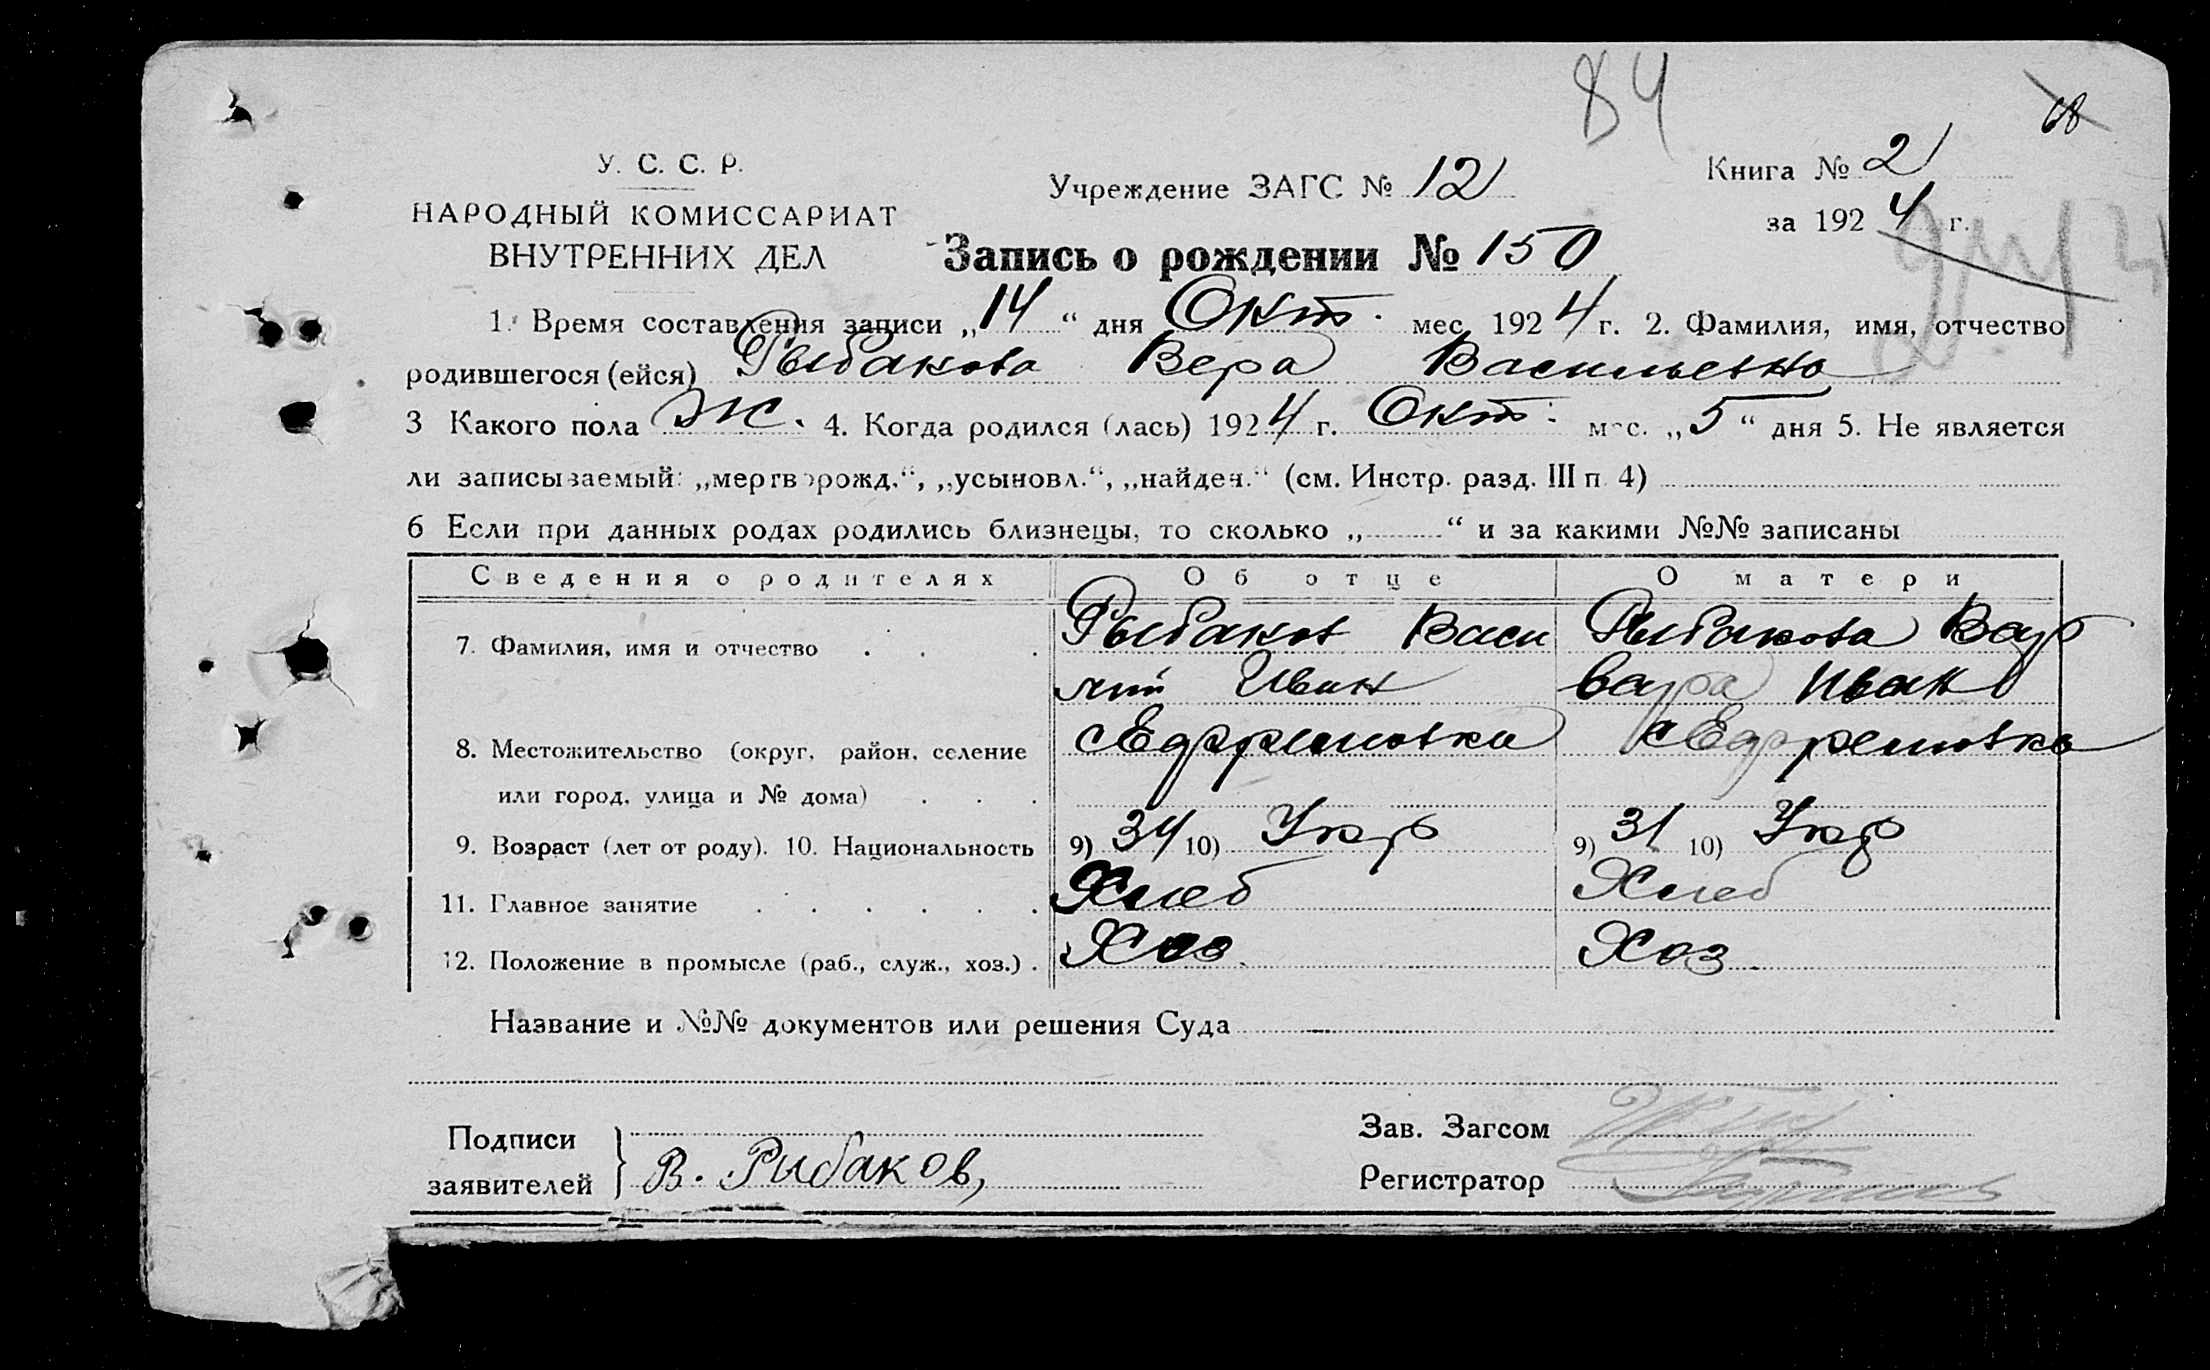 84
68
У. С. С. Р.
НАРОДНЫЙ КОМИССАРИАТ
ВНУТРЕННИХ ДЕЛ
Учреждение ЗАГС № 12
Книга № 2
за 1924 г.
Запись о рождении № 150
1. Время составления записи „14“ дня Окт. мес. 1924 г. 2. Фамилия, имя, отчество
родившегося (ейся) Рыбакова Вера Васильевна
3 Какого пола Ж. 4. Когда родился (лась) 1924 г. Окт. мес. „5“ дня 5. Не является
ли записываемый: „мертворожд.“, „усыновл.“, „найден.“ (см. Инстр. разд. III п. 4)
6 Если при данных родах родились близнецы, то сколько „ “ и за какими №№ записаны
Сведения о родителях Об отце О матери
7. Фамилия, имя и отчество Рыбаков Васи Рыбакова Вар
лий Иван вара Иван
8. Местожительство (округ, район, селение с Ефремовка с Ефремовка
или город, улица и № дома)
9. Возраст (лет от роду). 10. Национальность 9) 34 10) Укр 9) 31 10) Укр
11. Главное занятие Хлеб Хлеб
12. Положение в промысле (раб., служ., хоз.) Хоз. Хоз.
Название и №№ документов или решения Суда
Подписи
заявителей
В. Рибаков,
Зав. Загсом
Регистратор